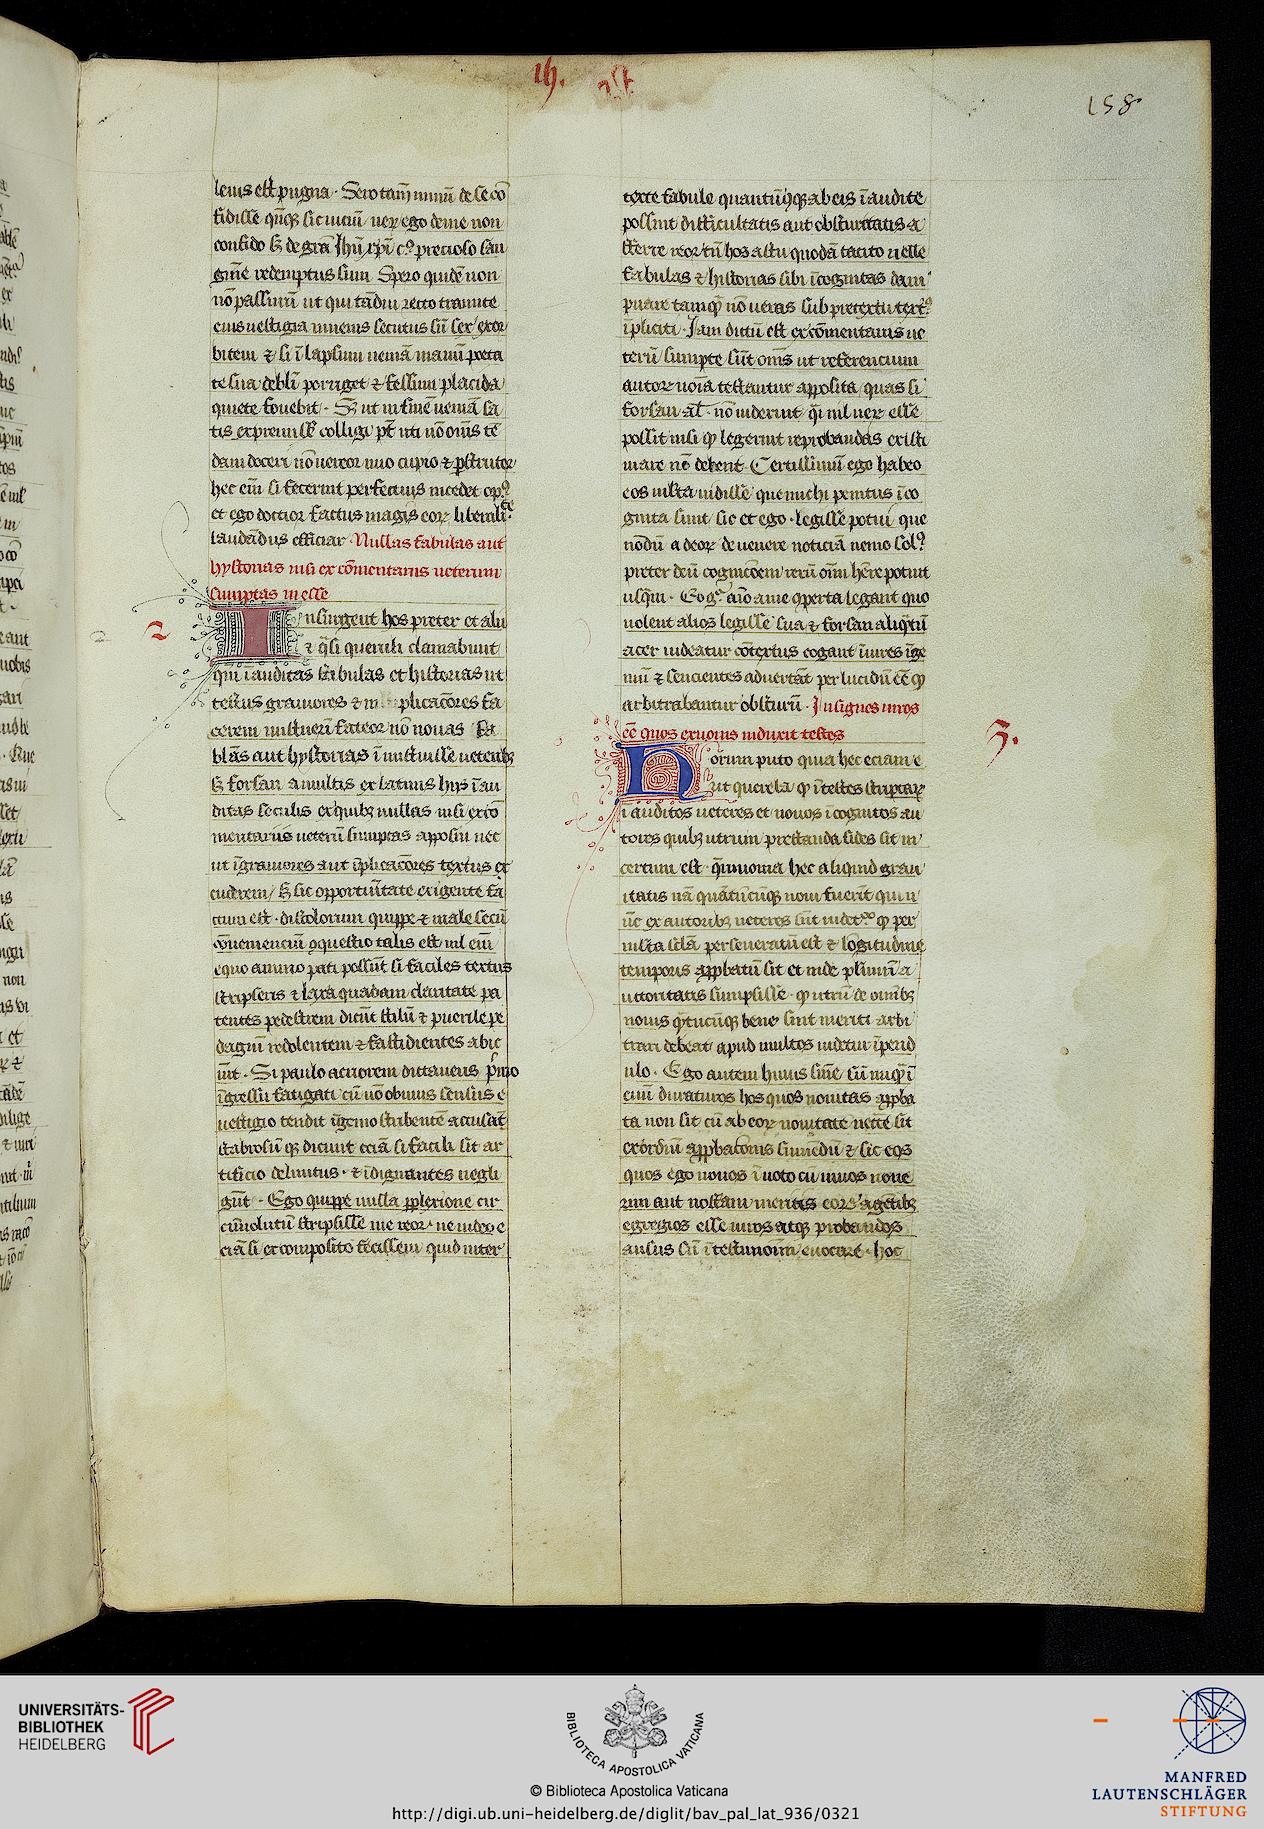 lh.
158
leuis est pugna. Sero tam̄ nimiū de se cō
fidisse qn̄q̨ sit uiciū uerꝫ ego de me non
confido sꝫ de gr̄a Ihū xp̄i cꝰ precioso san
guīe redemptus sum. Spero quidē non
nō passurū ut qui tādiu recto tramite
eius uestigia iuuenis secutus sū sex exor
bitem ⁊ si ī lapsum ueniā manū poeta
te sua debl̄i porriget ⁊ fessum placida
quiete fouebit. Sꝫ ut in finē ueniā sa
tis expremisse colligi pt̄ uti nō om̄s te
dam doceri nō uereor īmo cupio ⁊ p̱scrutor
hec eīm si fecerint perfectius incedet opꝰ
et ego doctior factus magis eoꝝ liberali
laudādus efficiar. Nullas fabulas aut
hystorias nisi ex cōmentariis ueterum
sumptas inesse
2
Insurgent hos preter et alii
⁊ q̄si queruli clamabunt
qui īauditas fabulas et historias ut
testus grauiores ⁊ plicacōres fa
cerem īmiscuerī fateor nō nouas fa
blās aut hystorias īmiscuisse ueteribꝫ
sꝫ forsan a multis ex latinis hys īau
ditas seculis ex quibꝫ nullas nisi ex cō
mentariis ueterū sumptas apposui nec
ut īgrauiores aut īplicacōres textus ex
cuderem sꝫ sic opportūitate exigente fa
ctum est. discolorum quippe ⁊ male secū
cōueniencium ꝯquestio talis est nil eīm
equo animo pati possūt si faciles textus
scripseris ⁊ laxa quadam claritate pa
tentes pedestrem dicūt stilū ⁊ puerile pe
dagiū redolentem ⁊ fastidientes abic
iūt. Si paulo acriorem dictaueris p̄mo
īgressu fatigati cū nō obuius sensus e
uestigio tendit īgenio scribentē accusāt
scabrosū q̨ dicunt eciā si facili sit ar
tificio delinitus. ⁊ īdignantes negli
gūt. Ego quippe nulla p̱plexione cir
cūuolutū scripsisse me reor. ne iudex e
ciā si ex composito fecissem quid inter
texte fabule quantūcūq̨ ab eis īaudite
possint difficultatis aut obscuritatis a
fferre reor tū hos astu quodā tacito uelle
fabulas ⁊ historias sibi īcognitas dam
pnare tamq̄ nō ueras sub pretextu textꝰ
īpliciti. Jam dictū est ex cōmentariis ue
terū sumpte sūt om̄s ut referencium
autoꝝ noīa testantur apposita quas si
forsan al̄ nō uiderint q̄i nil ueꝝ esse
possit nisi qd̄ legerint reprobandas existi
mare nō debent. Certissimū ego habeo
eos multa uidisse que michi penitus īco
gnita sunt sic et ego legisse potui que
nōdū a deoꝝ deuenere noticiā nemo solꝰ
preter deū cognicōem rerū oīm hēre potuit
usq̄m. Eogꝰ aīo ame ꝯperta legant quo
uolent alios legisse sua ⁊ forsan aliqn̄tū
acer uideatur cōtextus cogant īuires īge
nii ⁊ sencientes aduertāt perlucidū eē qd̄
arbitrabantur obscurū. Insignes uiros
eē quos ex nouis induxit testes
3.
Horum puto quia hec eciam e
rit querela qd̄ ī testes scripturaꝝ
īauditos ueteres et nouos īcognitos au
tores quibꝫ utrum prestanda fides sit in
certum est. quīnimmo hec aliquid graui
itatis nā quātūcūq̨ noui fuerīt qui n
ūc ex autoribꝫ ueteres sūt uidetꝰ qd̄ per
multa sc̄la perseueratū est ⁊ lōgitudine
temporis app̱batū sit et inde plurimū a
uctoritatis sumpsisse. qd̄ utrū de oībꝫ
nouis q̄ntūcūq̨ bene sint meriti arbi
trari debeat apud multos uidetur īperid
ulo. Ego autem huius sn̄ie sū nūq̄ ī
euū duraturos hos quos nouitas app̱ba
ta non sit cū ab eoꝝ nouitate necesse sit
exordiū app̱bacōnis sumēdū ⁊ sic eos
quos ego nouos ī uoto cū uiuos noue
rim aut nostram meritis eoꝝ agētibꝫ
egregios esse uiros atq̨ probandos
ausus sū ī testimoīm euocare. hoc
UNIVERSITÄTS-
BIBLIOTHEK
HEIDELBERG
BIBLIOTECA APOSTOLICA VATICANA
© Biblioteca Apostolica Vaticana
http://digi.ub.uni-heidelberg.de/diglit/bav_pal_lat_936/0321
MANFRED
LAUTENSCHLÄGER
STIFTUNG